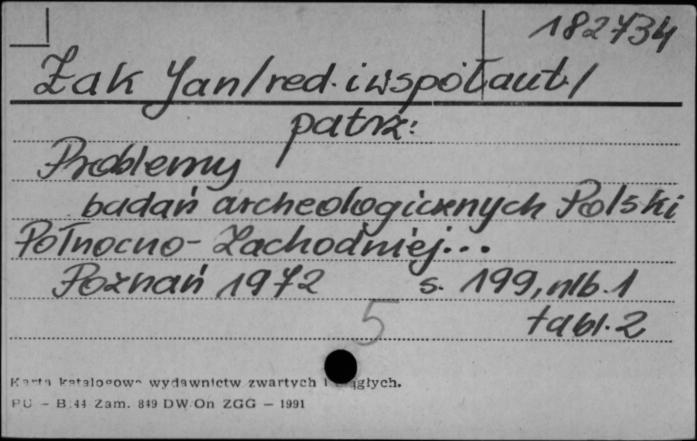 182734
Żak Jan /red. i współaut./
patrz:
Problemy
badań archeologicznych Polski
Północno-Zachodniej...
Poznań 1972 s. 199, nlb. 1
tabl. 2
5
Karta katalogowa wydawnictw zwartych i ciągłych.
PU - B.44 Zam. 849 DW.On ZGG - 1991